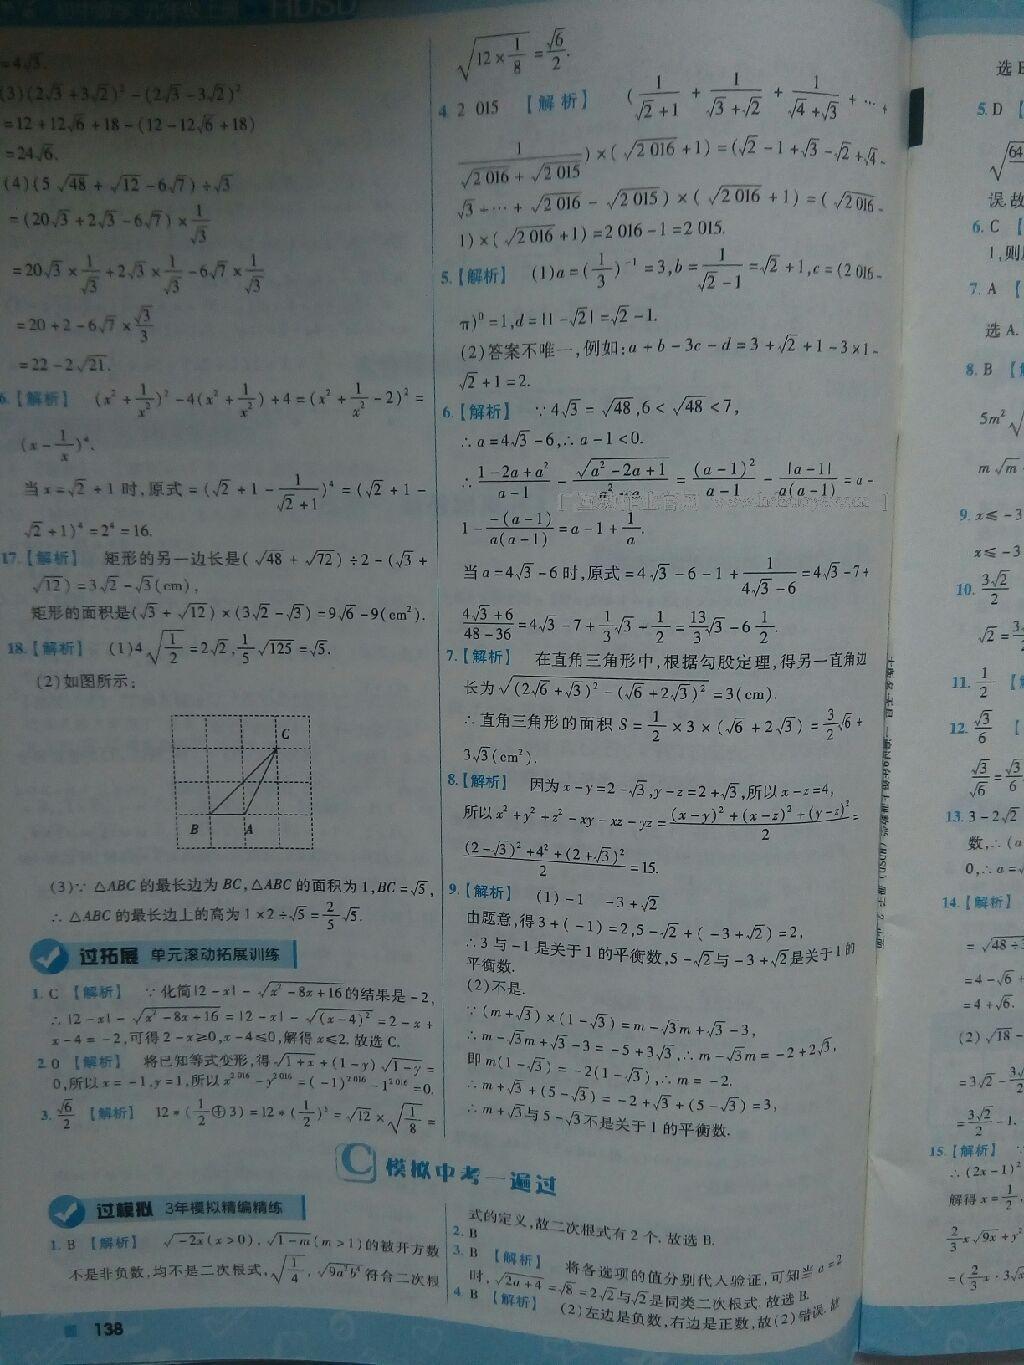 初中数学 九年级上册 HDSD
=4√3.
(3)(2√3+3√2)²-(2√3-3√2)²
=12+12√6+18-(12-12√6+18)
=24√6.
(4)(5√48+√12-6√7)÷√3
=(20√3+2√3-6√7)×1/√3
=20√3×1/√3+2√3×1/√3-6√7×1/√3
=20+2-6√7×√3/3
=22-2√21.
6.【解析】 (x²+1/x²)²-4(x²+1/x²)+4=(x²+1/x²-2)²=
(x-1/x)⁴.
当x=√2+1时,原式=(√2+1-1/(√2+1))⁴=(√2+1-
√2+1)⁴=2⁴=16.
17.【解析】 矩形的另一边长是(√48+√72)÷2-(√3+
√12)=3√2-√3(cm),
矩形的面积是(√3+√12)×(3√2-√3)=9√6-9(cm²).
18.【解析】 (1)4√(1/2)=2√2,1/5√125=√5.
(2)如图所示:
C
B A
(3)∵△ABC的最长边为BC,△ABC的面积为1,BC=√5,
∴△ABC的最长边上的高为1×2÷√5=2/5√5.
过拓展 单元滚动拓展训练
1. C 【解析】 ∵化简|2-x|-√(x²-8x+16)的结果是-2,
∴|2-x|-√(x²-8x+16)=|2-x|-√((x-4)²)=2-x+
x-4=-2,可得2-x≥0,x-4≤0,解得x≤2.故选C.
2. 0 【解析】 将已知等式变形,得√(1+x)+(1-y)√(1-y)=
0,所以x=-1,y=1,所以x²⁰¹⁶-y²⁰¹⁶=(-1)²⁰¹⁶-1²⁰¹⁶=0.
3. √6/2 【解析】 12*(1/2⊕3)=12*(1/2)³=√12×√(1/8)=
√(12×1/8)=√6/2.
4. 2 015 【解析】 (1/(√2+1)+1/(√3+√2)+1/(√4+√3)+…+
1/(√2 016+√2 015))×(√2 016+1)=(√2-1+√3-√2+√4-
√3+…+√2 016-√2 015)×(√2 016+1)=(√2 016-
1)×(√2 016+1)=2 016-1=2 015.
5.【解析】 (1)a=(1/3)⁻¹=3,b=1/(√2-1)=√2+1,c=(2 015-
π)⁰=1,d=|1-√2|=√2-1.
(2)答案不唯一,例如:a+b-3c-d=3+√2+1-3×1-
√2+1=2.
6.【解析】 ∵4√3=√48,6<√48<7,
∴a=4√3-6,∴a-1<0.
∴(1-2a+a²)/(a-1)-√(a²-2a+1)/(a²-a)=(a-1)²/(a-1)-|a-1|/(a(a-1))=a-
1-(-(a-1))/(a(a-1))=a-1+1/a.
当a=4√3-6时,原式=4√3-6-1+1/(4√3-6)=4√3-7+
(4√3+6)/(48-36)=4√3-7+1/3√3+1/2=13/3√3-6 1/2.
7.【解析】 在直角三角形中,根据勾股定理,得另一直角边
长为√((2√6+√3)²-(√6+2√3)²)=3(cm).
∴直角三角形的面积S=1/2×3×(√6+2√3)=3/2√6+
3√3(cm²).
8.【解析】 因为x-y=2-√3,y-z=2+√3,所以x-z=4,
所以x²+y²+z²-xy-xz-yz=((x-y)²+(x-z)²+(y-z)²)/2=
((2-√3)²+4²+(2+√3)²)/2=15.
9.【解析】 (1)-1 -3+√2
由题意,得3+(-1)=2,5-√2+(-3+√2)=2,
∴3与-1是关于1的平衡数,5-√2与-3+√2是关于1的
平衡数.
(2)不是.
∵(m+√3)×(1-√3)=m-√3m+√3-3,
∴m-√3m+√3-3=-5+3√3,∴m-√3m=-2+2√3,
即m(1-√3)=-2(1-√3),∴m=-2.
∴m+√3+(5-√3)=-2+√3+(5-√3)=3,
∴m+√3与5-√3不是关于1的平衡数.
C 模拟中考一遍过
过模拟 3年模拟精编精练
1. B 【解析】 √(-2x)(x>0),√(1-m)(m>1)的被开方数
不是非负数,均不是二次根式,√(1/4),√(9a²b⁴)符合二次根
式的定义,故二次根式有2个.故选B.
2. B
3. B 【解析】 将各选项的值分别代入验证,可知当a=2
时,√(2a+4)=√8=2√2与√2是同类二次根式.故选B.
4. B 【解析】 (2)左边是负数,右边是正数,故(2)错误.故
138
选B
5. D
√64
误.故
6. C
1,则
7. A
选A.
8. B
5m²√
m√m
9. x≤-3
x≤-3
10. 3√2/2
√2=
11. 1/2
12. √3/6
√3/√6=√3/6
13. 3-2√2
数,∴(a
0,∴a=
14.【解析】
=√48÷
=4-√6+
=4+√6.
(2)√18-
=3√2-
=3√2/2-1.
15.【解析】 ∵
∴(2x-1)²
解得x=1/2,
2/3x√9x+y²
=(2/3x·3√x